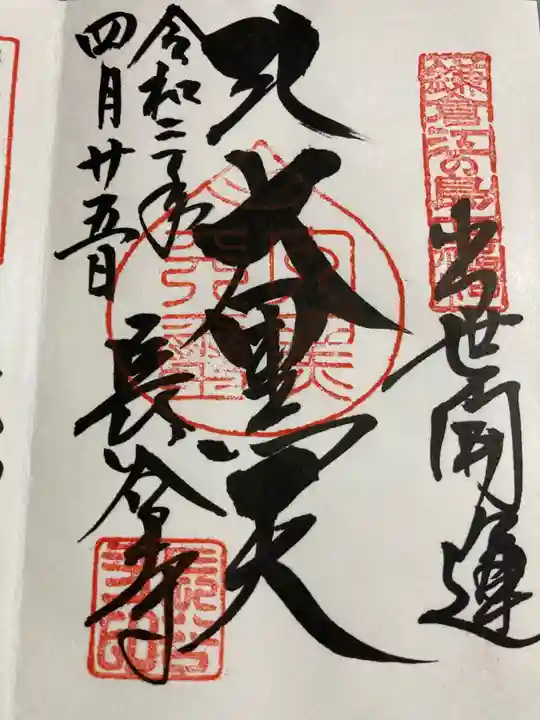 鎌倉江の島七福神
出世開運
大黒天
令和二年
四月廿五日
長谷寺